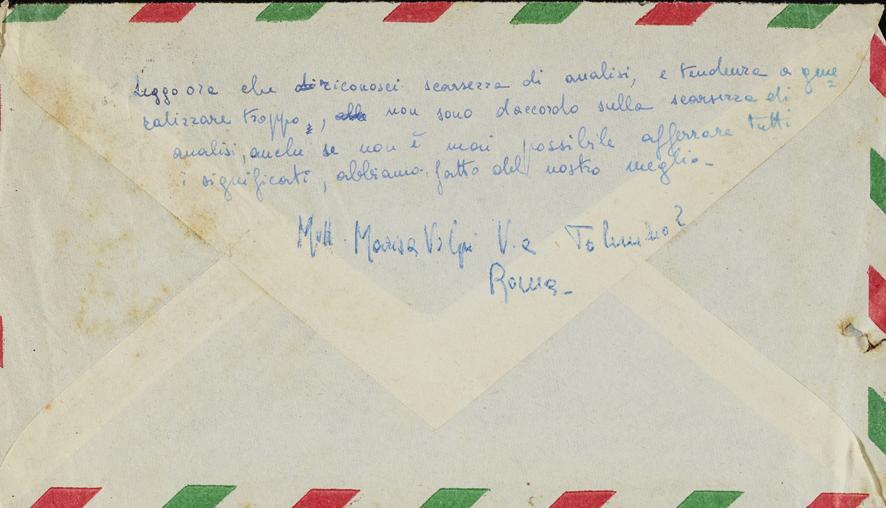 Leggo ora che riconosci scarsezza di analisi, e tendenza a gene
ralizzare troppo, non sono daccordo sulla scarsezza di
analisi, anche se non è mai possibile afferrare tutti
i significati, abbiamo fatto del nostro meglio-
Mitt. Marisa Volpi Via Tolmino 2
Roma-